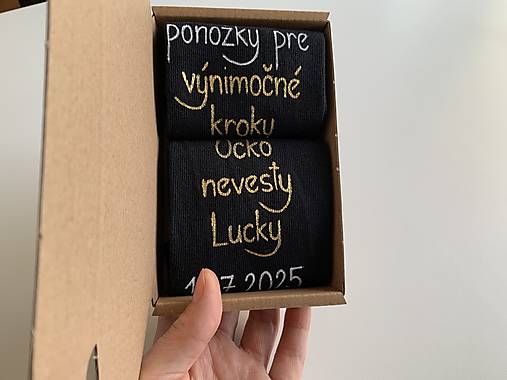 ponožky pre
výnimočné
kroky
Ocko
nevesty
Lucky
7.2025